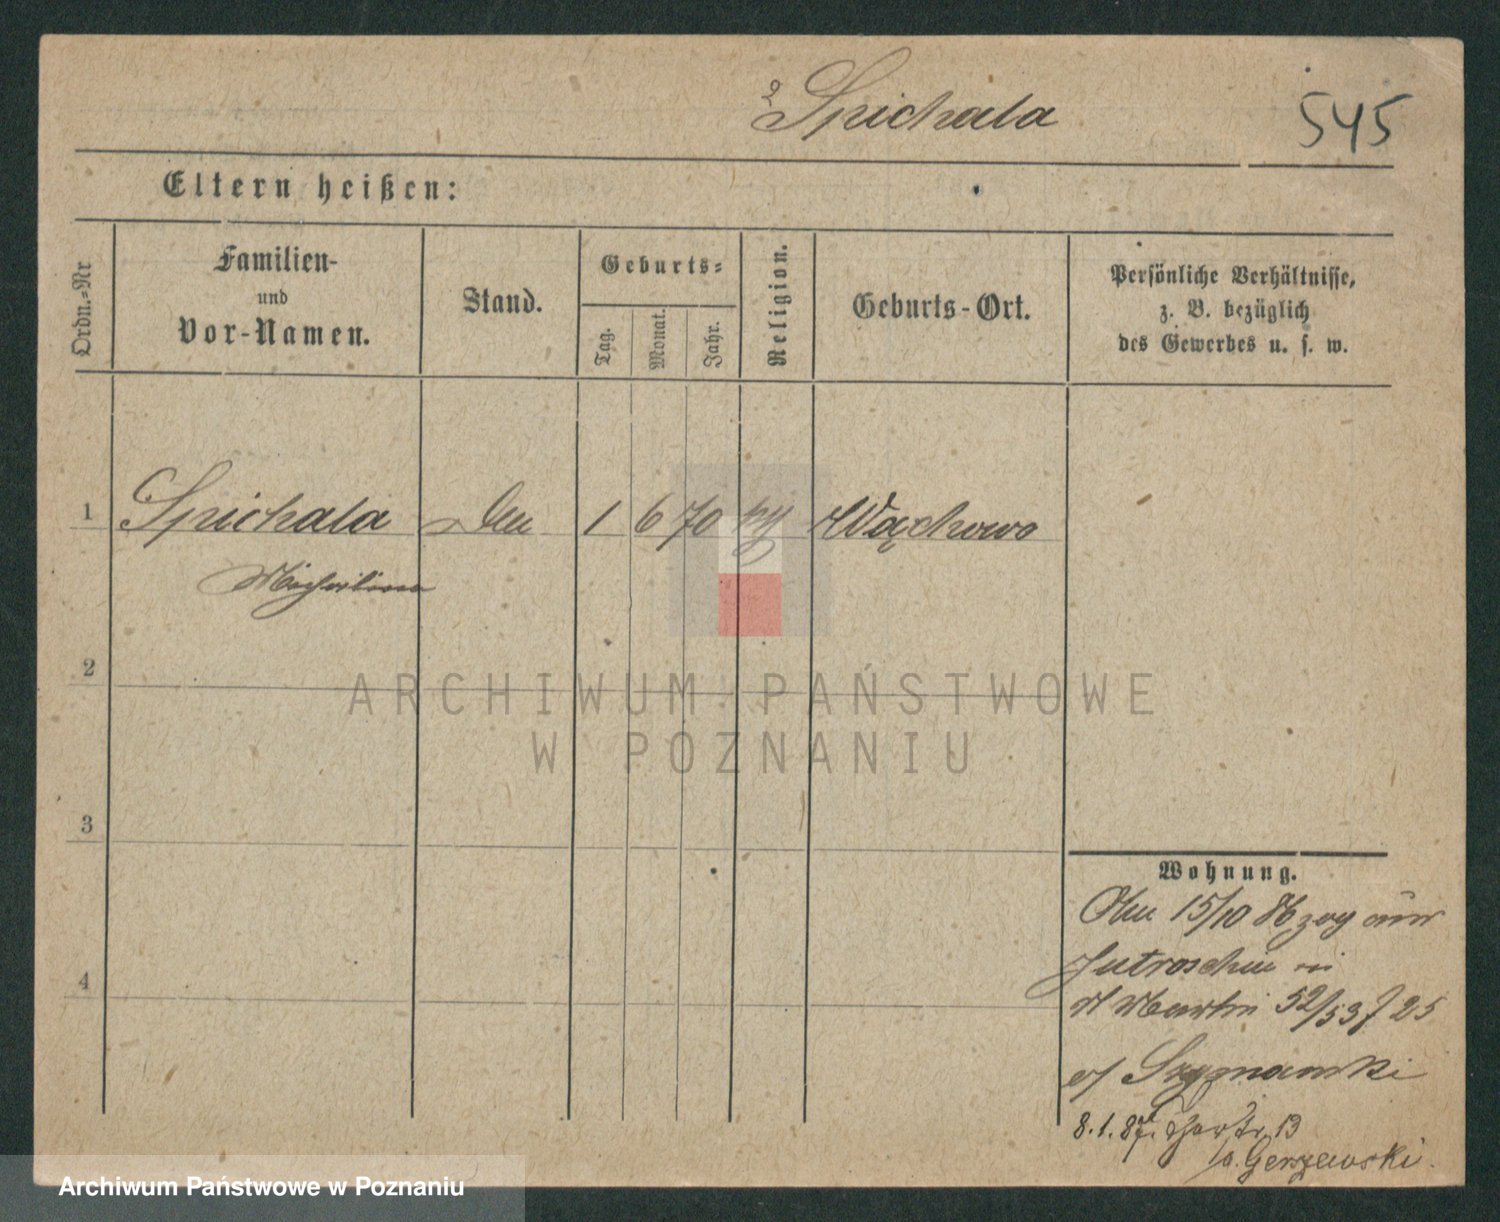 Spichala 545
Eltern heißen:
Ordn.=Nr
Familien-
und
Vor-Namen.
Stand.
Geburts=
Tag.
Monat.
Jahr.
Religion.
Geburts-Ort.
Persönliche Verhältnisse,
z. B. bezüglich
des Gewerbes u. s. w.
1 Spichala 1 6 70 Wąchowo
2
3
4
Wohnung.
15/10 86 zog
Jutroschin in
Martin 52/53 25
Szymanski
8.1.87. 13
Gerszewski
ARCHIWUM PAŃSTWOWE
W POZNANIU
Archiwum Państwowe w Poznaniu